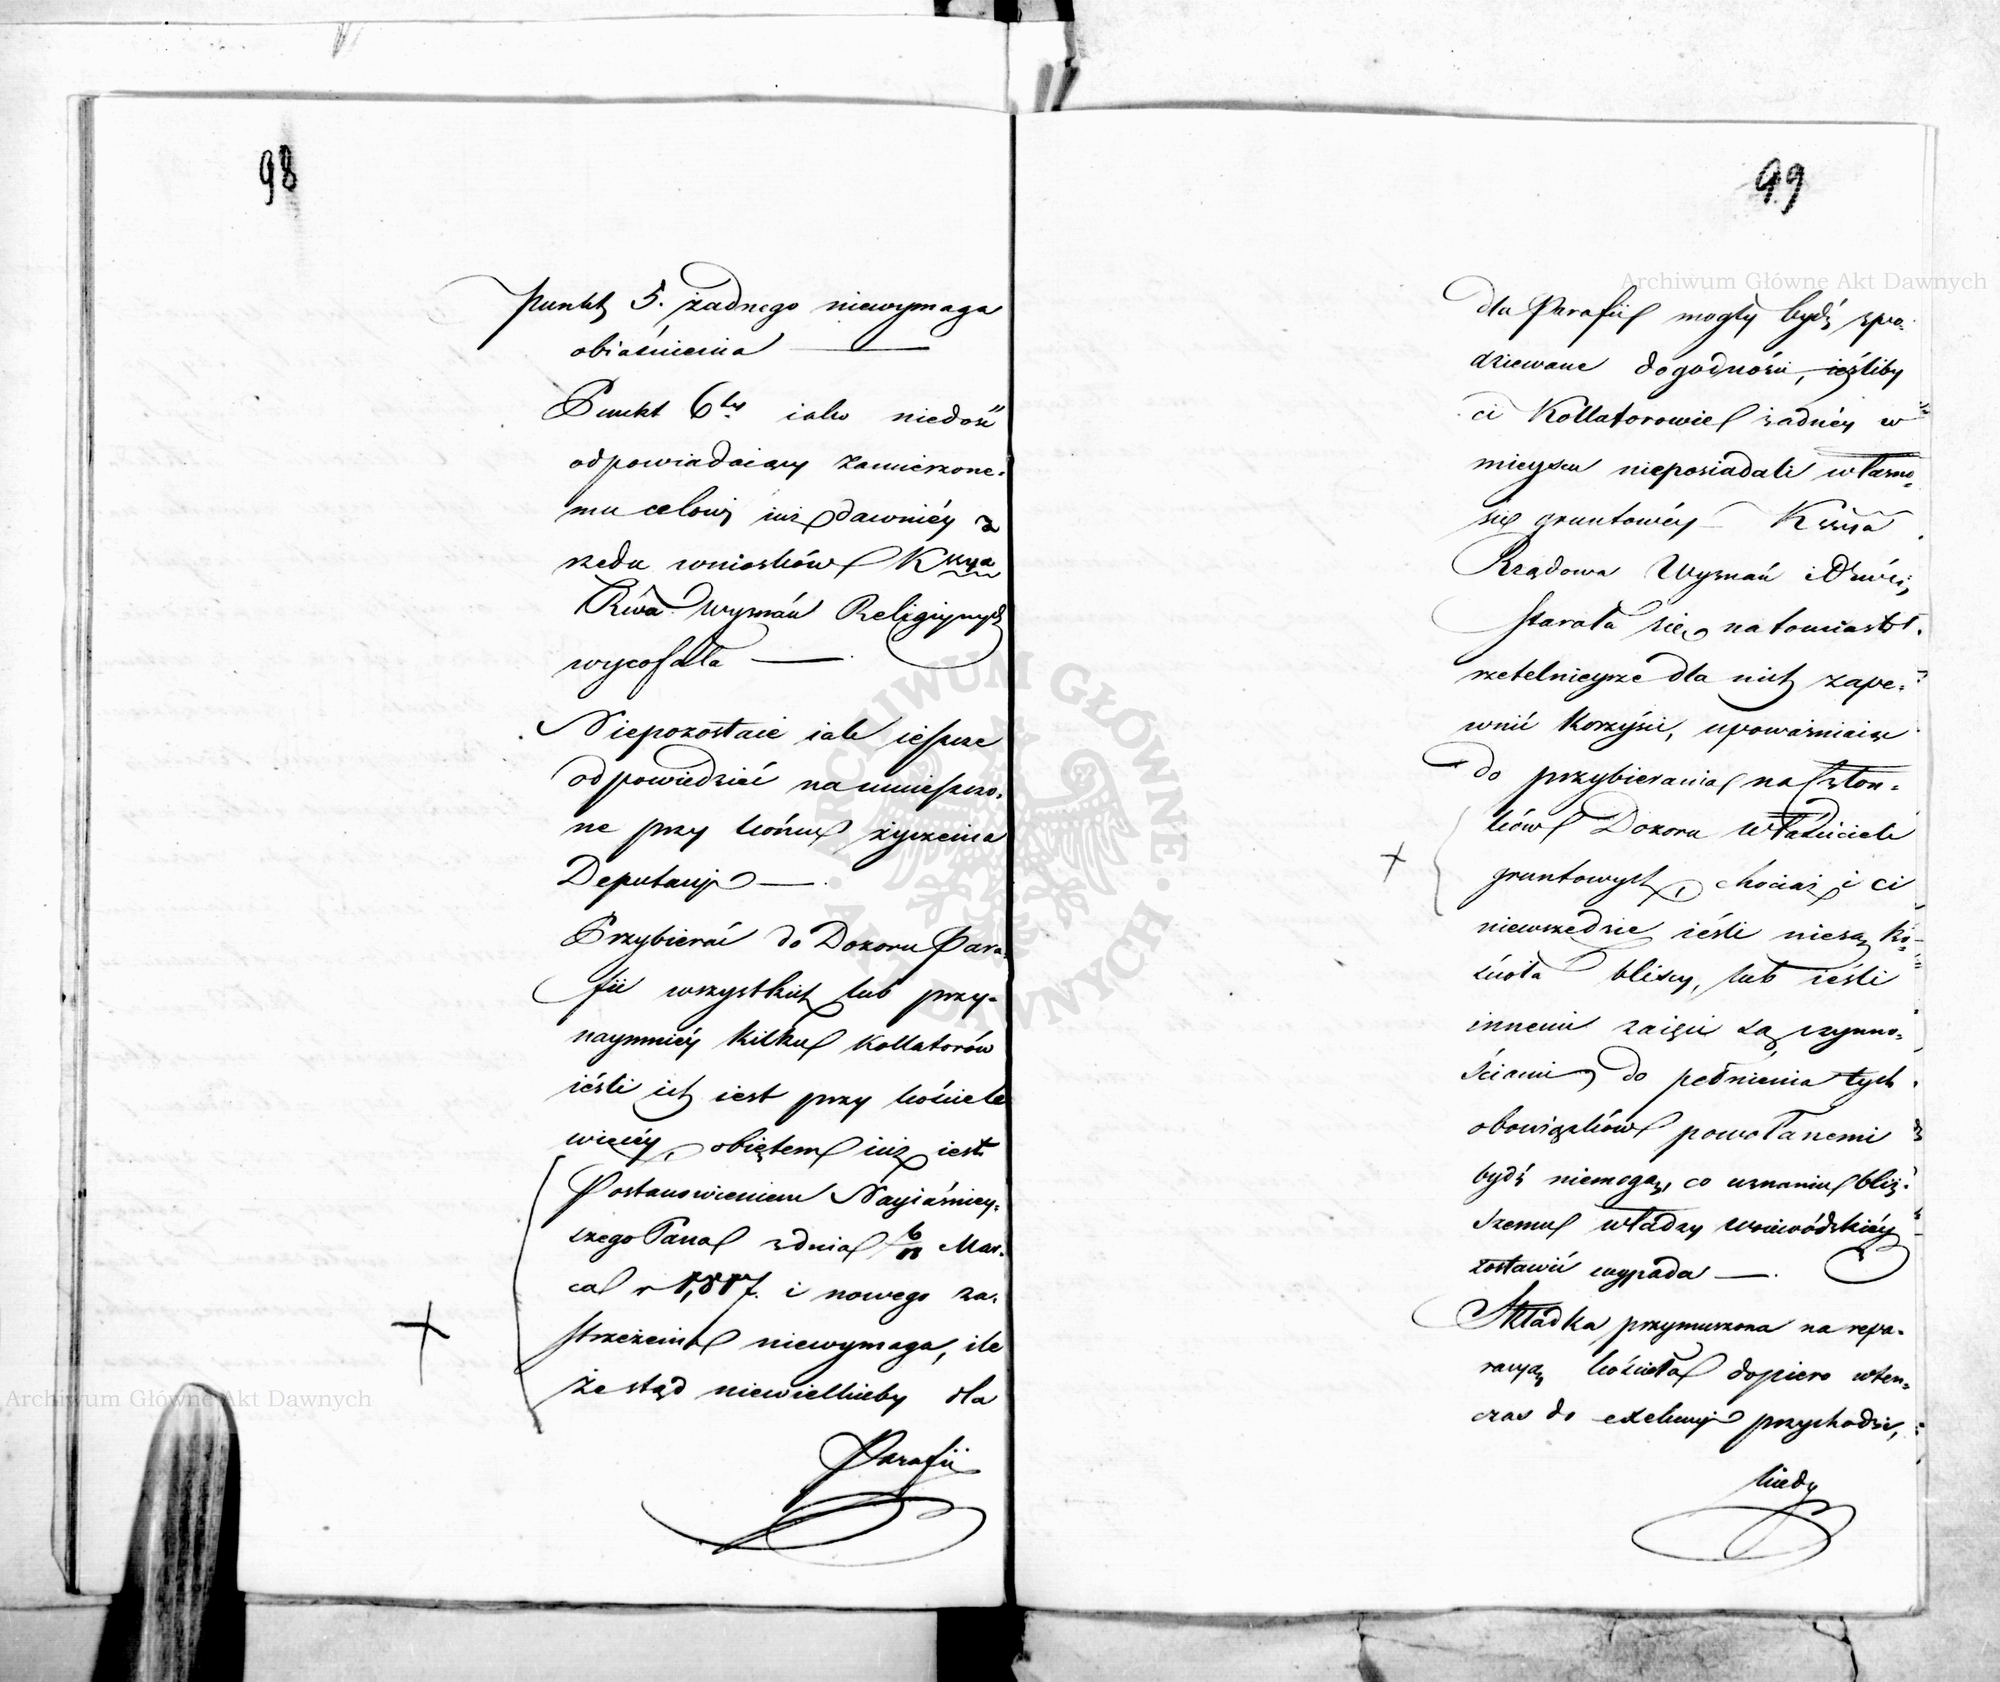 98
Punkt 5. żadnego niewymaga
obiaśnienia —
Punkt 6ty iako niedość
odpowiadaiący zamierzone-
mu celowi iuż dawniéy z
rzędu wniosków Kssya
Rwa Wyznań Religiynych
wycofała —
Niepozostaie iak ieszcze
odpowiedzieć na umieszczo-
ne przy końcu życzenia
Deputacyi —
Przybierać do Dozoru Para-
fii wszystkich lub przy-
naymniéy kilku Kollatorów
iéśli ich iest przy kościele
więcéy, obiętem iuż iest
Postanowieniem Nayiaśniey-
szego Pana z dnia 6/18 Mar-
ca r 1,817. i nowego za-
strzeżenia niewymaga, ile
że stąd niewielkieby dla
Parafii
99
dla Parafii mogły bydź spo-
dziewane dogodności, ieśliby
ci Kollatorowie żadnéy w
mieyscu nieposiadali własno-
ści gruntowéy — Kssya
Rządowa Wyznań i Oświe;
starała się natomiast
rzetelnieysze dla nich zape-
wnić korzyści, upoważniaiąc
do przybierania na Człon-
ków Dozoru właścicieli
gruntowych, chociaż i ci
niewszędzie iéśli niesą ko-
ścioła bliscy, lub iéśli
innemi zaięci są czynno-
ściami, do pełnienia tych
obowiązków powołanemi
bydź niemogą, co uznaniu bliż-
szemu władzy woiewódzkiéy
zostawić wypada —.
Składka przymuszona na repa-
racyą kościoła dopiero wten-
czas do exekucyi przychodzi,
kiedy
Archiwum Główne Akt Dawnych
Archiwum Główne Akt Dawnych
ARCHIWUM GŁÓWNE AKT DAWNYCH